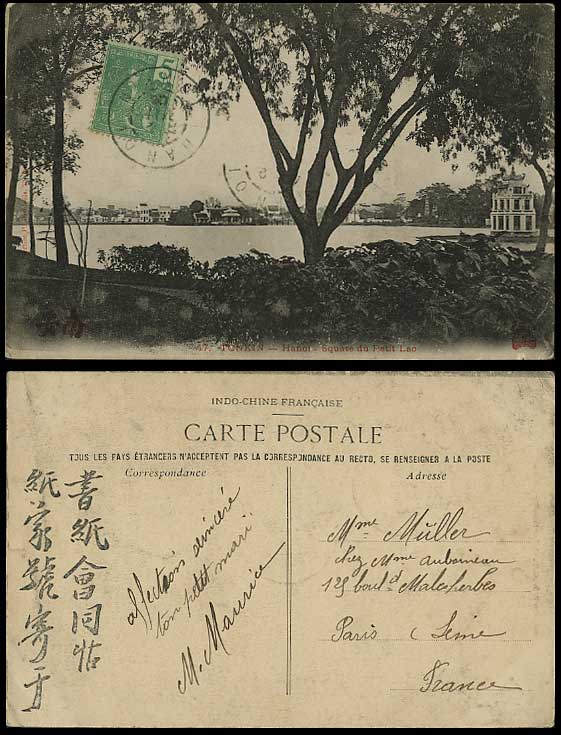 47. TONKIN — Hanoi - Square du Petit Lac
INDO-CHINE FRANÇAISE
CARTE POSTALE
TOUS LES PAYS ÉTRANCERS N'ACCEPTENT PAS LA CORRESPONDANCE AU RECTO, SE RENSEIGNER A LA POSTE
Correspondance
Adresse
書紙會同帖
紙家號寄于
affection sincère
ton petit mari
M. Maurice
Mme Müller
chez Mme Aubineau
125 boul.d Malesherbes
Paris (Seine
France